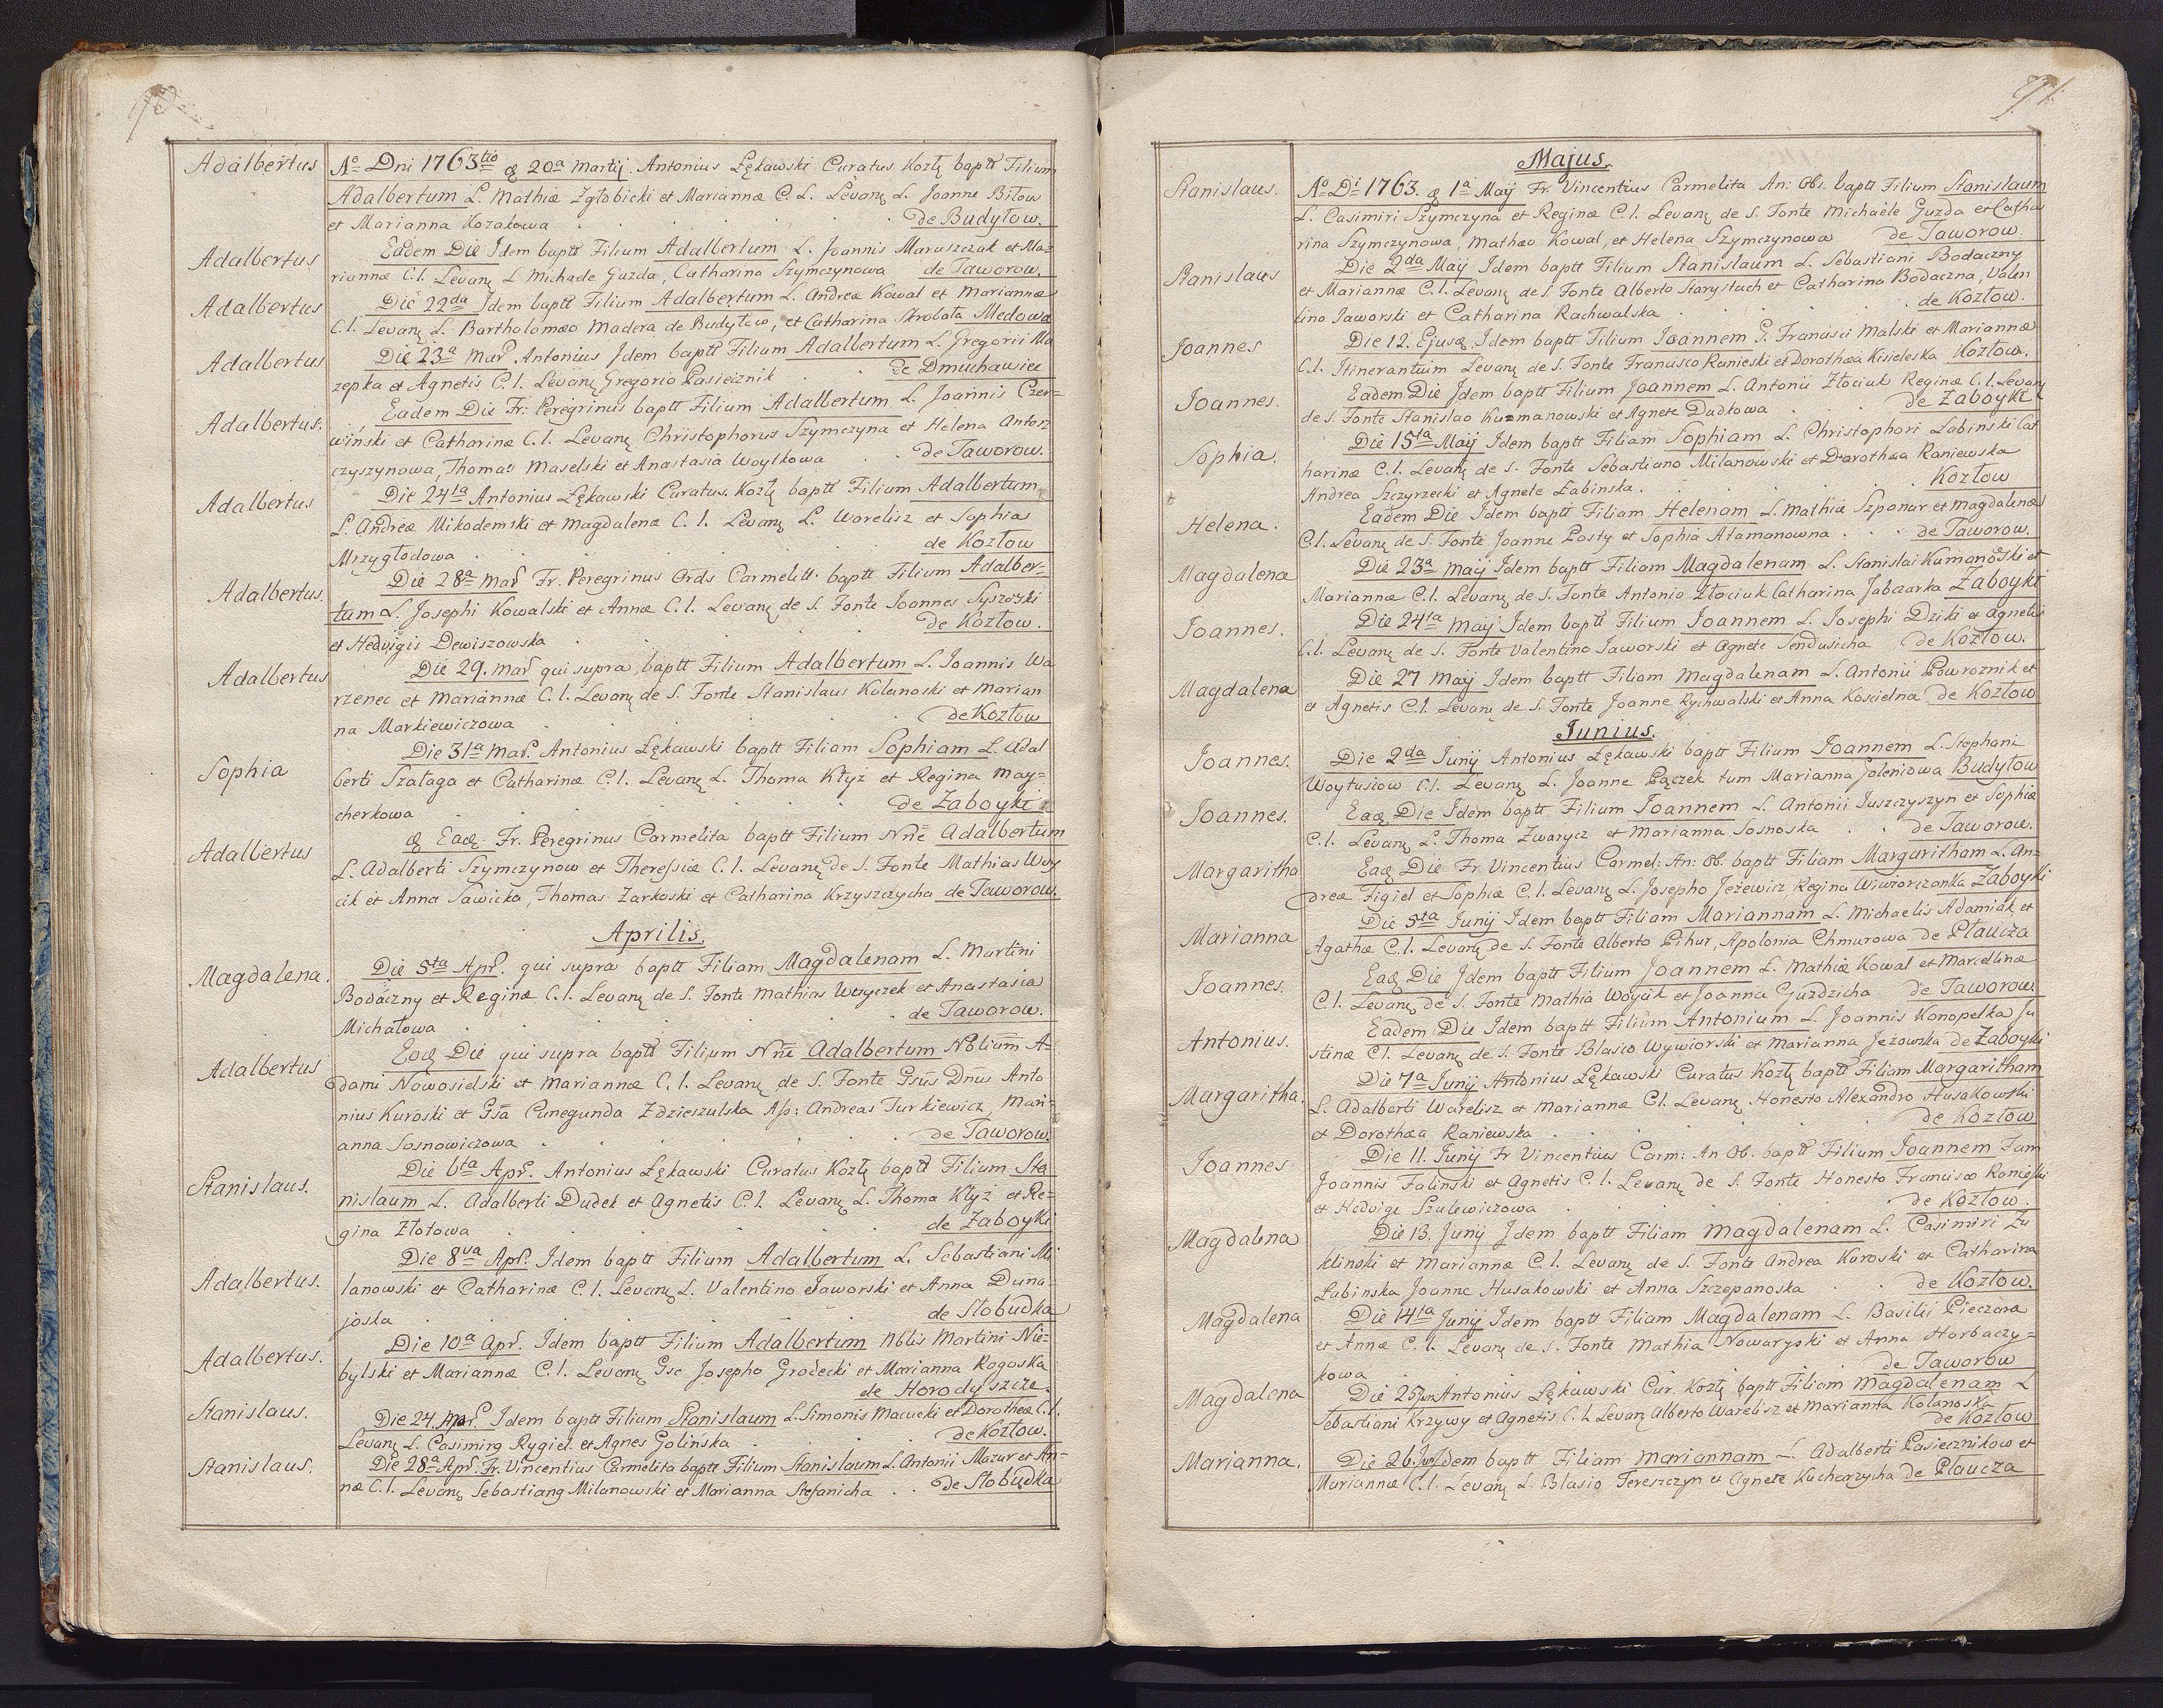 70
Adalbertus
Aº Dni 1763tio & 20a Martij. Antonius Łękawski Curatus Kozłę baptt Filium
Adalbertum L. Mathiæ Zgłobicki et Mariannæ C. L. Levanę L. Joanne Bilow
et Marianna Kozakowa . . . . de Budyłow.
Adalbertus
Eadem Die Idem baptt Filium Adalbertum L. Joannis Maruszczak et Ma=
riannæ C.l. Levanę L Michaele Guzda, Catharina Szymczynowa de Taworow.
Adalbertus
Die 22da Idem baptt Filium Adalbertum L. Andreæ Kowal et Mariannæ
C.l. Levanę L. Bartholomæo Madera de Budyłow, et Catharina Skrobala Medowa
Adalbertus
Die 23a Mar. Antonius Idem baptt Filium Adalbertum L. Gregorii Ma
zepka et Agnetis C. l. Levanę Gregorio Pasiecznik . . de Dmuchawiec
Adalbertus.
Eadem Die Fr: Peregrinus baptt Filium Adalbertum L. Joannis Czer=
wiński et Catharinæ C.l. Levanę Christophorus Szymczyna et Helena Antosz
czyszynowa, Thomas Maselski et Anastasia Woytkowa . . de Taworow.
Adalbertus
Die 24ta Antonius Łękawski Curatus. Kozłę baptt Filium Adalbertum
L. Andreæ Mikodemski et Magdalenæ C. l. Levanę L. Warelisz et Sophia
Mrzygłodowa . . . . de Kozłow
Adalbertus.
Die 28a Mar Fr. Peregrinus Ords Carmelitt. baptt Filium Adalber=
tum L. Josephi Kowalski et Annæ C.l. Levanę de S. Fonte Joannes Syszorski
et Hedvigis Dewiszowska . . . . de Kozłow.
Adalbertus
Die 29. Mar qui supra baptt Filium Adalbertum L. Joannis Wa
rzenec et Mariannæ C. l. Levanę de S. Fonte Stanislaus Kolanoski et Marian
na Markiewiczowa . . . . de Kozłow
Sophia
Die 31a Mar. Antonius Łękawski baptt Filiam Sophiam L. Adal
berti Szałaga et Catharinæ C.l. Levanę L. Thoma Kłyż et Regina May=
cherkowa . . . . de Zaboyki
Adalbertus
& Eadę Fr. Peregrinus Carmelita baptt Filium Nne Adalbertum
L. Adalberti Szymczynow et Theressiæ C. l. Levanę de S. Fonte Mathias Woy
cik et Anna Sawicka, Thomas Zarkoski et Catharina Krzyszczycha de Taworow.
Aprilis.
Magdalena.
Die 5ta Apr. qui supra baptt Filiam Magdalenam L. Martini
Bodaczny et Reginæ C. l. Levanę de S. Fonte Mathias Woyczek et Anastasia
Michałowa . . . . de Taworow.
Adalbertus
Eadę Die qui supra baptt Filium Nne Adalbertum Nblium A=
dami Nowosielski et Mariannæ C. l. Levanę de S. Fonte Gsus Dnus Anto
nius Kuroski et Gsa Cunegunda Zdzieszulska Aſs: Andreas Turkiewicz, Mari=
anna Sosnowiczowa . . . . de Taworow.
Stanislaus.
Die 6ta Apr. Antonius Łękawski Curatus Kozłę baptt Filium Sta
nislaum L. Adalberti Dudek et Agnetis C. l. Levanę L. Thoma Kłyż et Re=
gina Złotowa . . . . de Zaboyki
Adalbertus.
Die 8va Apr. Idem baptt Filium Adalbertum L. Sebastiani Mi
lanowski et Catharinæ C. l. Levanę L. Valentino Jaworski et Anna Duna=
joska . . . . de Słobudka
Adalbertus.
Die 10a Apr. Idem baptt Filium Adalbertum Nblis Martini Nie=
bylski et Mariannæ C. l. Levanę Gso Josepho Grodecki et Marianna Rogoska
de Horodyszcze.
Stanislaus.
Die 24. Apr. Idem baptt Filium Stanislaum L. Simonis Macucki et Dorotheæ C. l.
Levanę L. Casimirę Rygiel. et Agnes Golińska . . . de Kozłow.
Stanislaus.
Die 28a Apr. Fr. Vincentius Carmelita baptt Filium Stanislaum L. Antonii Mazur et An=
næ C. l. Levanę Sebastianę Milanowski et Marianna Stefanicha . . de Słobudka
71.
Majus.
Stanislaus.
Aº Di 1763. & 1a Maij Fr. Vincentius Carmelita An: Obs. baptt Filium Stanislaum
L. Casimiri Szymczyna et Reginæ C. l. Levanę de S. Fonte Michaele Guzda et Catha
rina Szymczynowa, Mathæo Kowal, et Helena Szymczynowa de Taworow.
Stanislaus
Die 2da Maij Idem baptt Filium Stanislaum L. Sebastiani Bodaczny
et Mariannæ C. l. Levanę de S. Fonte Alberto Starystach et Catharina Bodaczna, Valen
tino Jaworski et Catharina Rachwalska . . . de Kozłow.
Joannes
Die 12. Ejusdę Idem baptt Filium Joannem G. Francisci Malski et Mariannæ
C.l. Itinerantium Levanę de S. Fonte Francisco Ranieski et Dorothæa Kisieleska Kozłow.
Joannes.
Eadem Die Idem baptt Filium Joannem L. Antonii Złociuk Reginæ C. l. Levanę
de S. Fonte Stanislao Kuzmanowski et Agnete Dudkowa . . de Zaboyki
Sophia.
Die 15ta Maij Idem baptt Filiam Sophiam L. Christophori Łabinski Cat
harinæ C. l. Levanę de S. Fonte Sebastiano Milanowski et Dorothæa Raniewska
Andrea Szczyrzecki et Agnete Łabinska. . . . Kozłow
Helena.
Eadem Die Idem baptt Filiam Helenam L. Mathiæ Szponar et Magdalenæ
C. l. Levanę de S. Fonte Joanne Posty et Sophia Atamanowna . . . de Taworow.
Magdalena
Die 23a Maij Idem baptt Filiam Magdalenam L. Stanislai Kumanoski et
Mariannæ C. l. Levanę de S. Fonte Antonio Złociuk Catharina Jabczarka Zaboyki
Joannes.
Die 24ta Maij Idem baptt Filium Joannem L. Josephi Dziki et Agnetis
C. l. Levanę de S. Fonte Valentino Jaworski et Agnete Sendusicha de Kozłow.
Magdalena
Die 27 Maij Idem baptt Filiam Magdalenam L. Antonii Powroznik et
et Agnetis C. l. Levanę de S. Fonte Joanne Rychwalski et Anna Koscielna de Kozłow
Junius.
Joannes.
Die 2da Junij Antonius Łękawski baptt Filium Joannem L. Stephani
Woytusiow C. l. Levanę L. Joanne Pączek tum Marianna Joleniowa Budyłow
Joannes.
Eadę Die Idem baptt Filium Joannem L. Antonii Juszczyszyn et Sophiæ
C. l. Levanę L. Thoma Zwarycz et Marianna Sosnoska . . de Taworow.
Margaritha
Eadę Die Fr Vincentius Carmel: An: Ob. baptt Filiam Margaritham L. An=
dreæ Figiel et Sophiæ C. l. Levanę L. Josepho Jeżewicz, Regina Wiwiorczanka Zaboyki
Marianna
Die 5ta Junij Idem baptt Filiam Mariannam L. Michaelis Adamiak et
Agathæ C. l. Levanę de S. Fonte Alberto Pihur, Apolonia Chmurowa de Płaucza
Joannes.
Eadę Die Idem baptt Filium Joannem L. Mathiæ Kowal et Marcellinæ
C. l. Levanę de S. Fonte Mathia Woycik et Joanna Guzdzicha de Taworow.
Antonius.
Eadem Die Idem baptt Filium Antonium L Joannis Konopelka Ju
stinæ C l. Levanę de S. Fonte Blasio Wywiorski et Marianna Jezowska de Zaboyki
Margaritha.
Die 7a Junij Antonius Łękawski Curatus Kozłę baptt Filiam Margaritham
L. Adalberti Warelisz et Mariannæ C l. Levanę Honesto Alexandro Husakowski
et Dorothæa Raniewska . . . . de Kozłow
Joannes
Die 11. Junij Fr Vincentius Carm: An Ob. baptt Filium Joannem Fam
Joannis Falinski et Agnetis C. l. Levanę de S. Fonte Honesto Francisco Ranieski
et Hedvige Szulewiczowa . . . . de Kozłow.
Magdalena
Die 13. Junij Idem baptt Filiam Magdalenam L. Casimiri Zu
klinski et Mariannæ C. l. Levanę de S. Fonte Andrea Kuroski et Catharina
Łabinska Joanne Husakowski et Anna Szczepanoska . . de Kozłow.
Magdalena
Die 14ta Junij Idem baptt Filiam Magdalenam L. Basilii Pieczara
et Annæ C. l. Levanę de S. Fonte Mathia Nowaryski et Anna Horbaczy=
kowa . . . . de Taworow
Magdalena
Die 25 Jun Antonius Łękawski Cur. Kozłę baptt Filiam Magdalenam L
Sebastiani Krzywy et Agnetis C. l. Levanę Alberto Warelisz et Marianna Kolanoska
de Kozłow
Marianna.
Die 26. Jun Idem baptt Filiam Mariannam L. Adalberti Pasiecznikow et
Mariannæ C. l. Levanę L. Blasio Tereszczyn et Agnete Kucharzycha de Płaucza